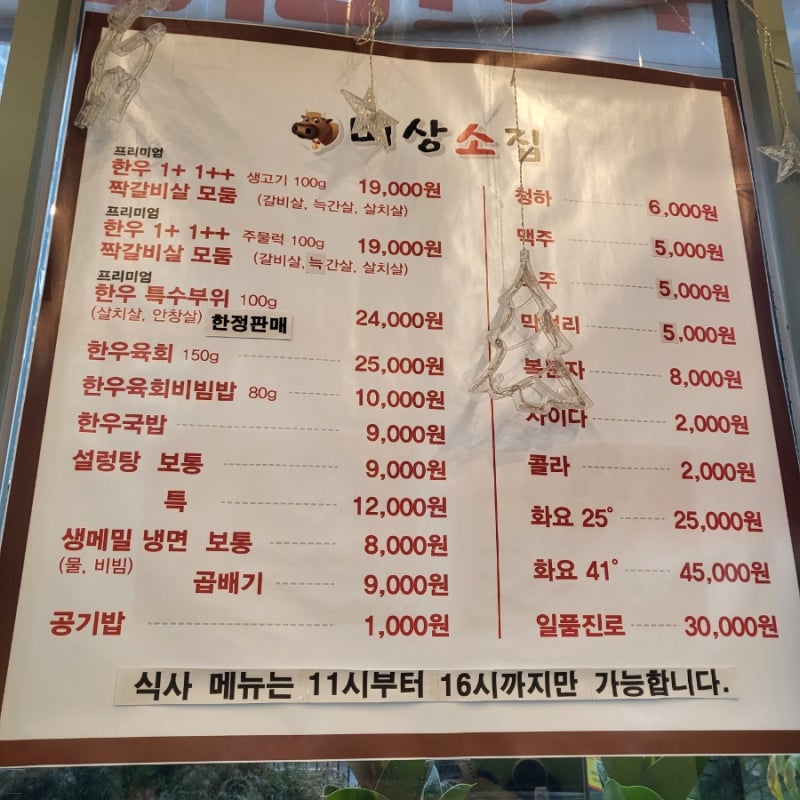 상소집
프리미엄
한우 1+ 1++ 생고기 100g 19,000원
짝갈비살 모둠 (갈비살, 늑간살, 살치살)
프리미엄
한우 1+ 1++ 주물럭 100g 19,000원
짝갈비살 모둠 (갈비살, 늑간살, 살치살)
프리미엄
한우 특수부위 100g
(살치살, 안창살) 한정판매 24,000원
한우육회 150g 25,000원
한우육회비빔밥 80g 10,000원
한우국밥 9,000원
설렁탕 보통 9,000원
특 12,000원
생메밀 냉면 보통 8,000원
(물, 비빔)
곱배기 9,000원
공기밥 1,000원
청하 6,000원
맥주 5,000원
주 5,000원
막걸리 5,000원
복분자 8,000원
사이다 2,000원
콜라 2,000원
화요 25° 25,000원
화요 41° 45,000원
일품진로 30,000원
식사 메뉴는 11시부터 16시까지만 가능합니다.